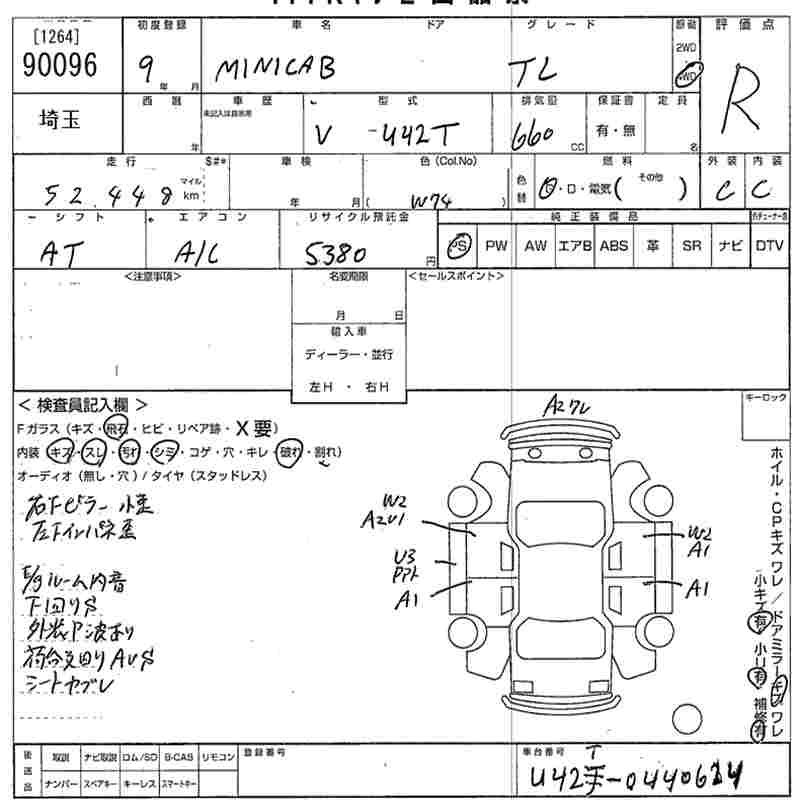 [1264]
90096
初度登録
9
年 月
車 名
MINICAB
ドア
グ レ ー ド
TL
2WD
4WD
評 価 点
R
埼玉
西 暦
年
車 歴
未記入は自家用
型 式
V -U42T
排気量
660
cc
保証書
有・無
定 員
名
走 行
52,448
マイル
km
S#*
車 検
年 月
色 (Col.No)
( W74 )
色替
燃 料
G・D・電気( その他 )
外 装
C
内 装
C
シ フ ト
AT
エ ア コ ン
A/C
リサイクル預託金
5380
円
純 正 装 備 品
PS PW AW エアB ABS 革 SR ナビ DTV
<注意事項>
名変期限
月 日
輸 入 車
ディーラー・並行
左H ・ 右H
<セールスポイント>
キーロック
< 検査員記入欄 >
Fガラス (キズ・飛石・ヒビ・リペア跡・X要)
内装 (キズ・スレ・汚れ・シミ・コゲ・穴・キレ・破れ・割れ)
オーディオ (無し・穴) / タイヤ (スタッドレス)
右Fピラー 小歪
左Fインパネ歪
E/gルーム内音
下回りS
外装P波あり
荷台廻りAUS
シートヤブレ
A2ワレ
W2
A2U1
U3
PPト
A1
W2
A1
A1
ホイル・CPキズ ワレ / ドアミラーキズ ワレ
小キズ有 小U有 補修有
後送品
取説 ナビ取説 ロム/SD B-CAS リモコン
ナンバー スペアキー キーレス スマートキー
登録番号
車台番号
T
U42-0440624